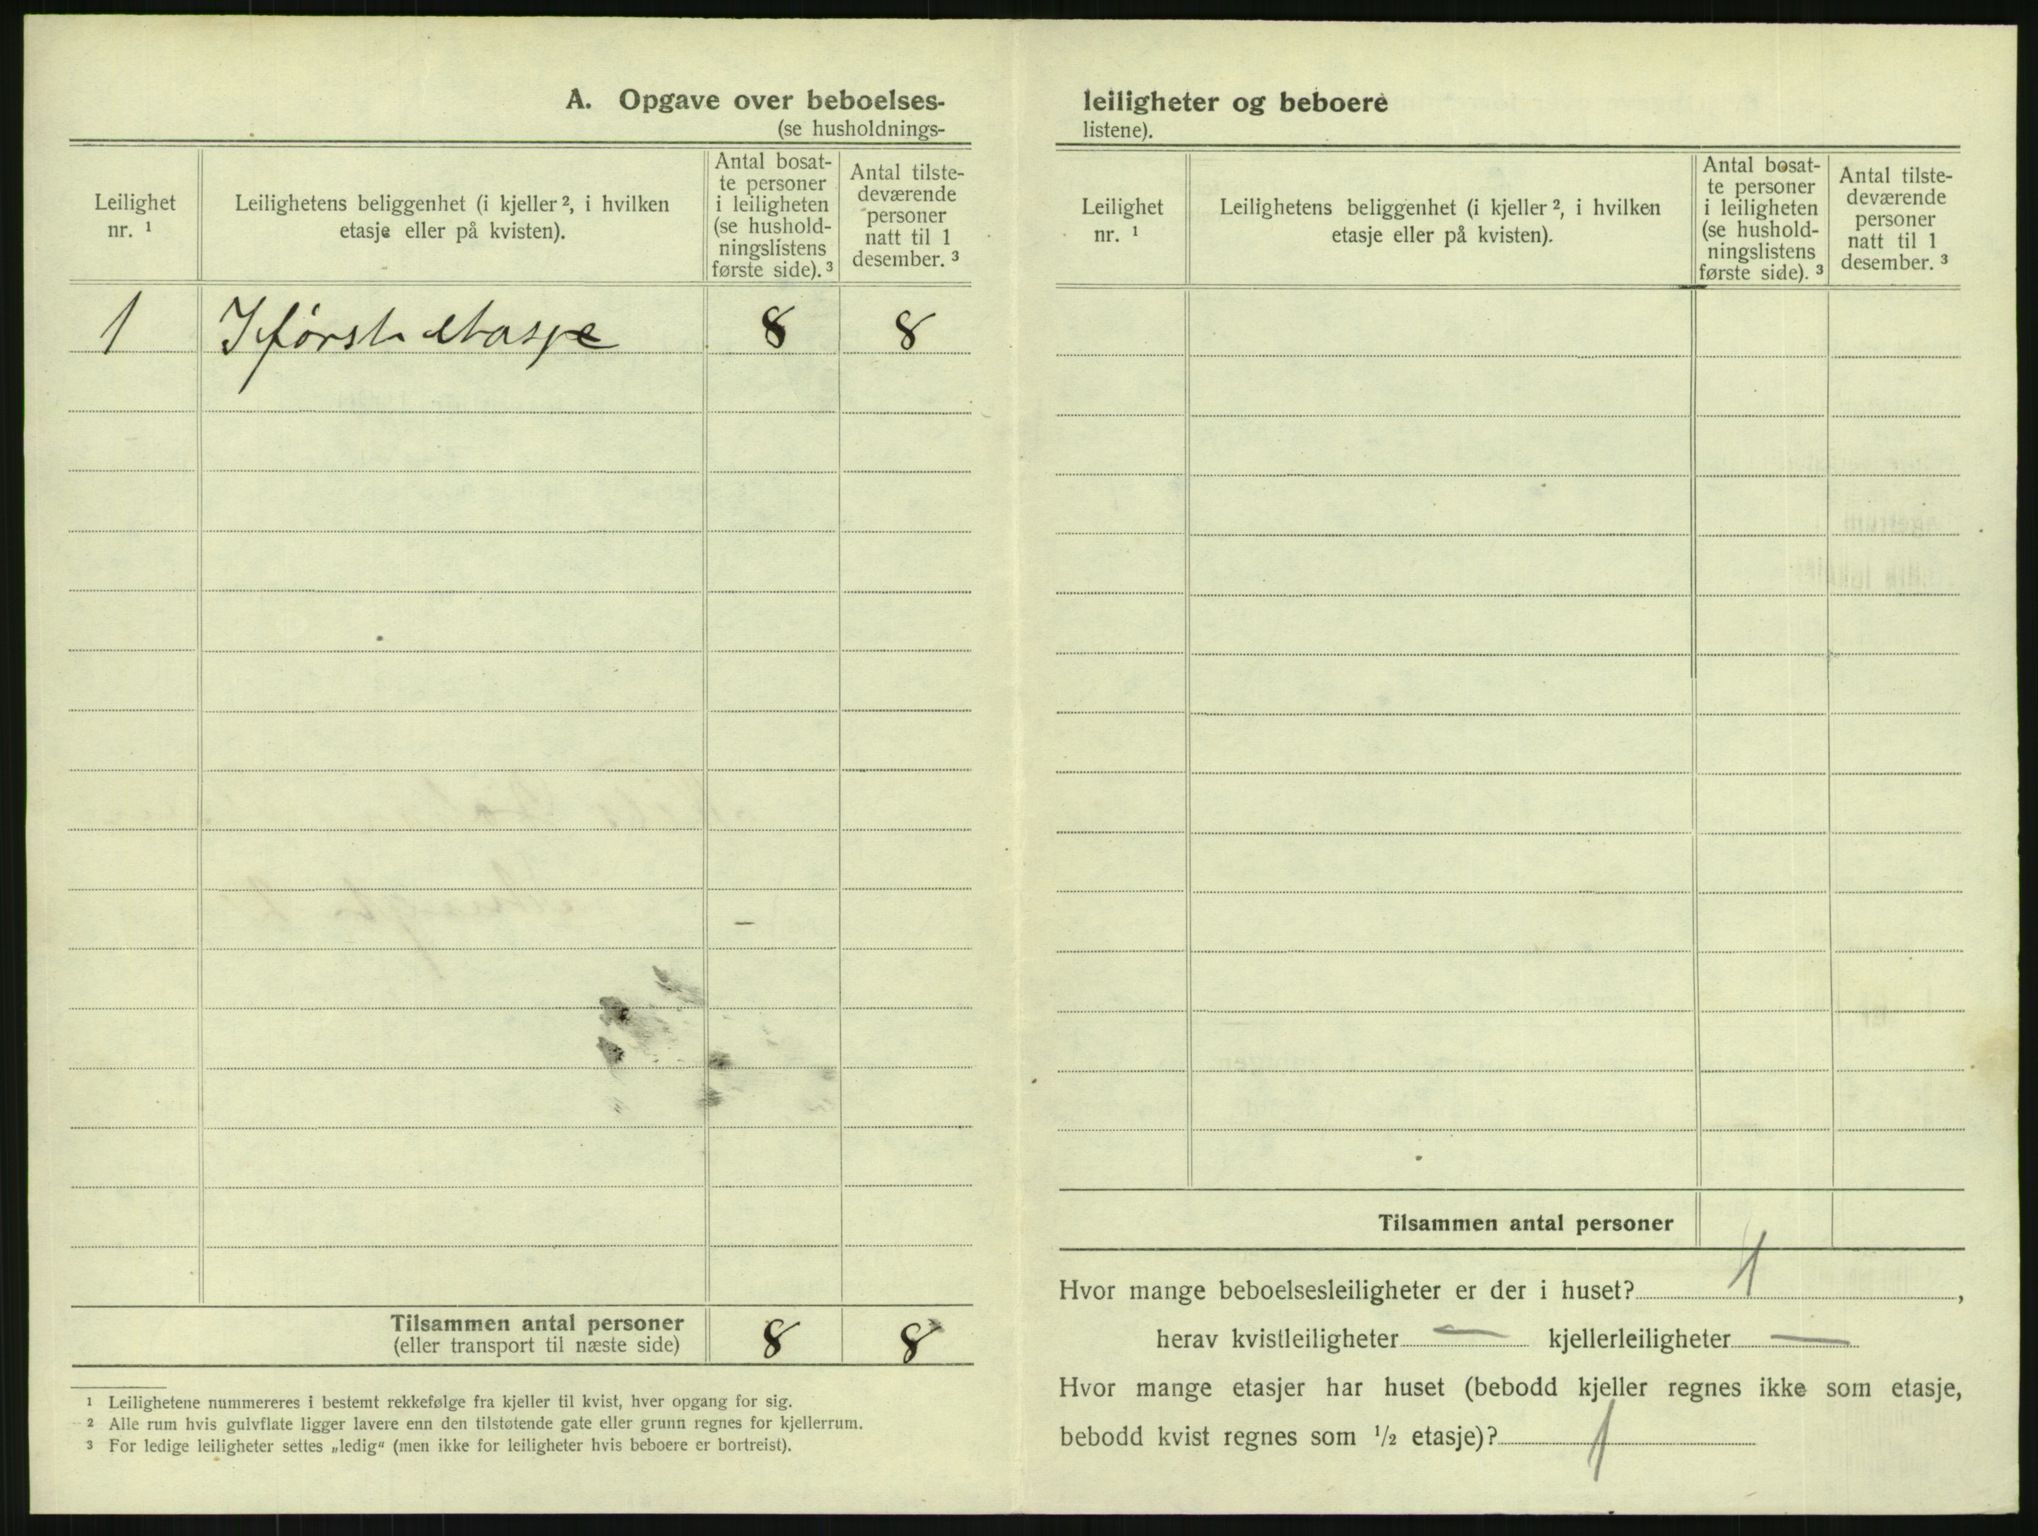 A. Opgave over beboelses-
(se husholdnings-
Leilighet nr. ¹
Leilighetens beliggenhet (i kjeller ², i hvilken
etasje eller på kvisten).
Antal bosat-
te personer
i leiligheten
(se hushold-
ningslistens
første side). ³
Antal tilste-
deværende
personer
natt til 1
desember. ³
1 I første etasje 8 8
Tilsammen antal personer 8 8
(eller transport til næste side)
¹ Leilighetene nummereres i bestemt rekkefølge fra kjeller til kvist, hver opgang for sig.
² Alle rum hvis gulvflate ligger lavere enn den tilstøtende gate eller grunn regnes for kjellerrum.
³ For ledige leiligheter settes „ledig“ (men ikke for leiligheter hvis beboere er bortreist).
leiligheter og beboere
listene).
Leilighet
nr. ¹
Leilighetens beliggenhet (i kjeller ², i hvilken
etasje eller på kvisten).
Antal bosat-
te personer
i leiligheten
(se hushold-
ningslistens
første side). ³
Antal tilste-
deværende
personer
natt til 1
desember. ³
Tilsammen antal personer
Hvor mange beboelsesleiligheter er der i huset? 1,
herav kvistleiligheter — kjellerleiligheter —
Hvor mange etasjer har huset (bebodd kjeller regnes ikke som etasje,
bebodd kvist regnes som ½ etasje)? 1